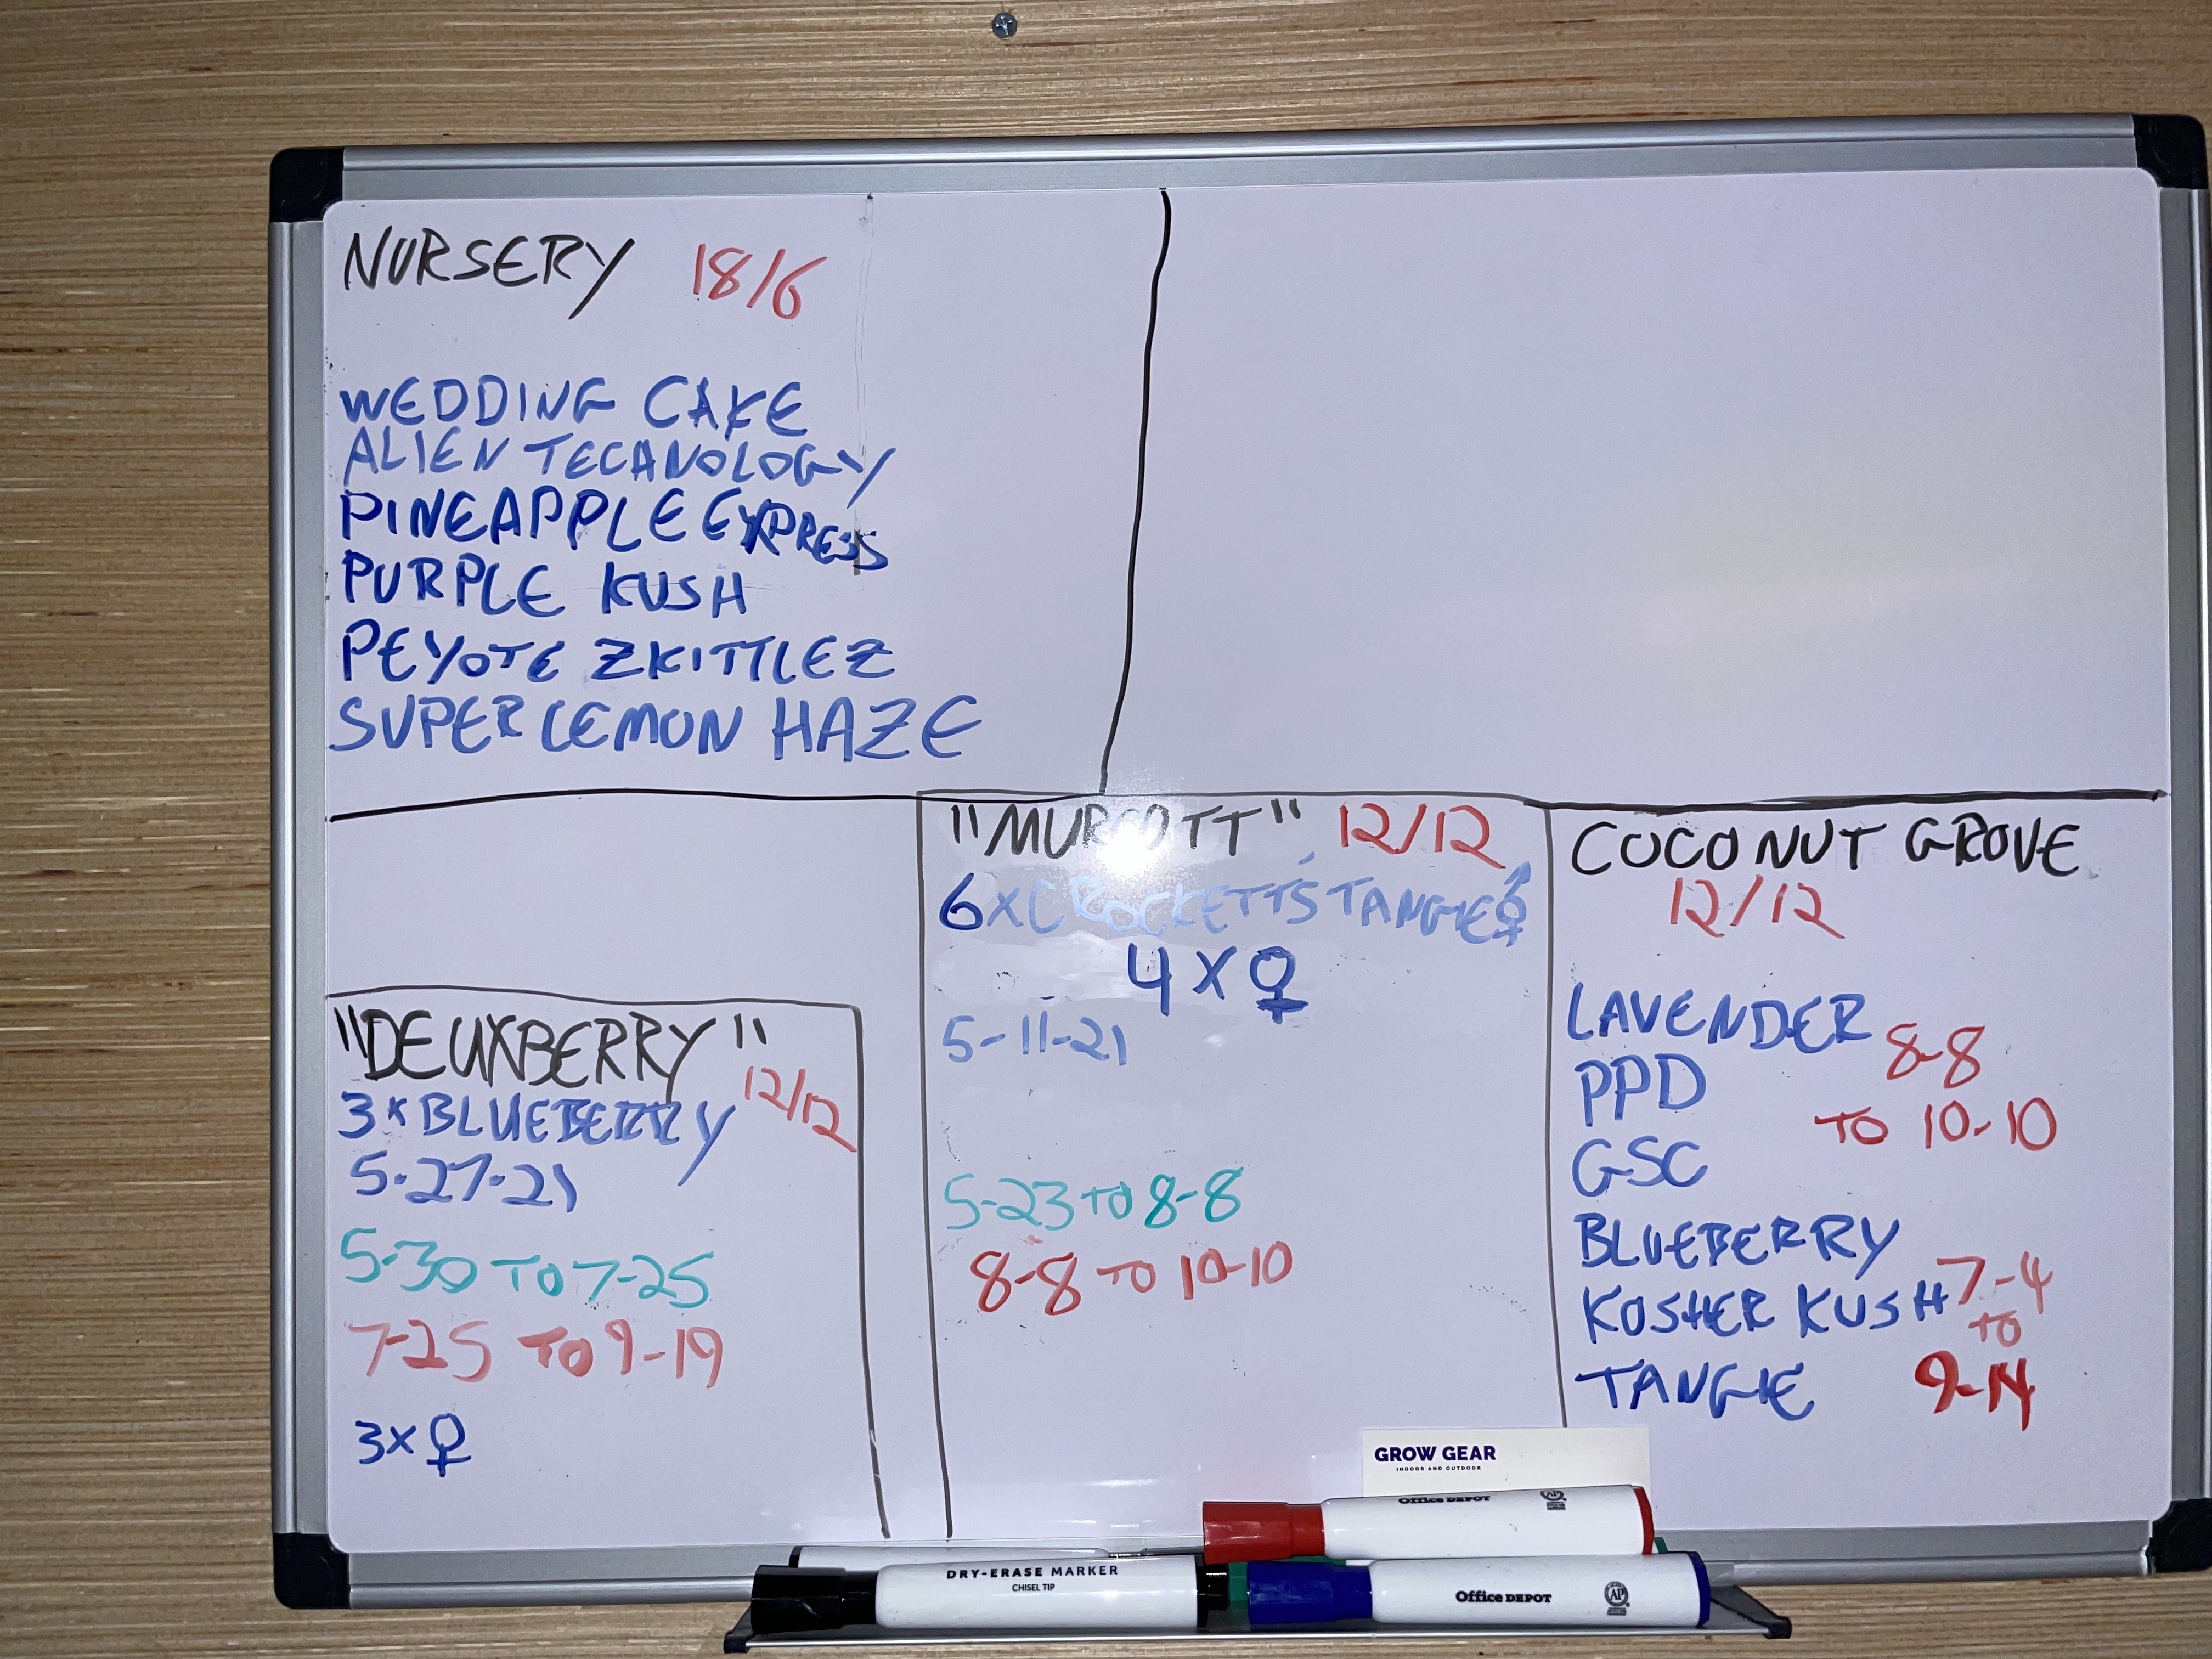 NURSERY 18/6
WEDDING CAKE
ALIEN TECANOLOGY
PINEAPPLE EXPRESS
PURPLE KUSH
PEYOTE ZKITTLEZ
SUPER LEMON HAZE
"DEUXBERRY"
12/12
3xBLUEBERRY
5-27-21
5-30 TO 7-25
7-25 TO 9-19
3x♀
"MURCOTT" 12/12
6xCROCKETT'S TANGIE⚨
4x♀
5-11-21
5-23 TO 8-8
8-8 TO 10-10
COCONUT GROVE
12/12
LAVENDER
PPD
GSC
8-8
TO 10-10
BLUEBERRY
KOSHER KUSH
TANGIE
7-4
TO
9-14
GROW GEAR
INDOOR AND OUTDOOR
Office DEPOT
DRY-ERASE MARKER
CHISEL TIP
Office DEPOT
AP